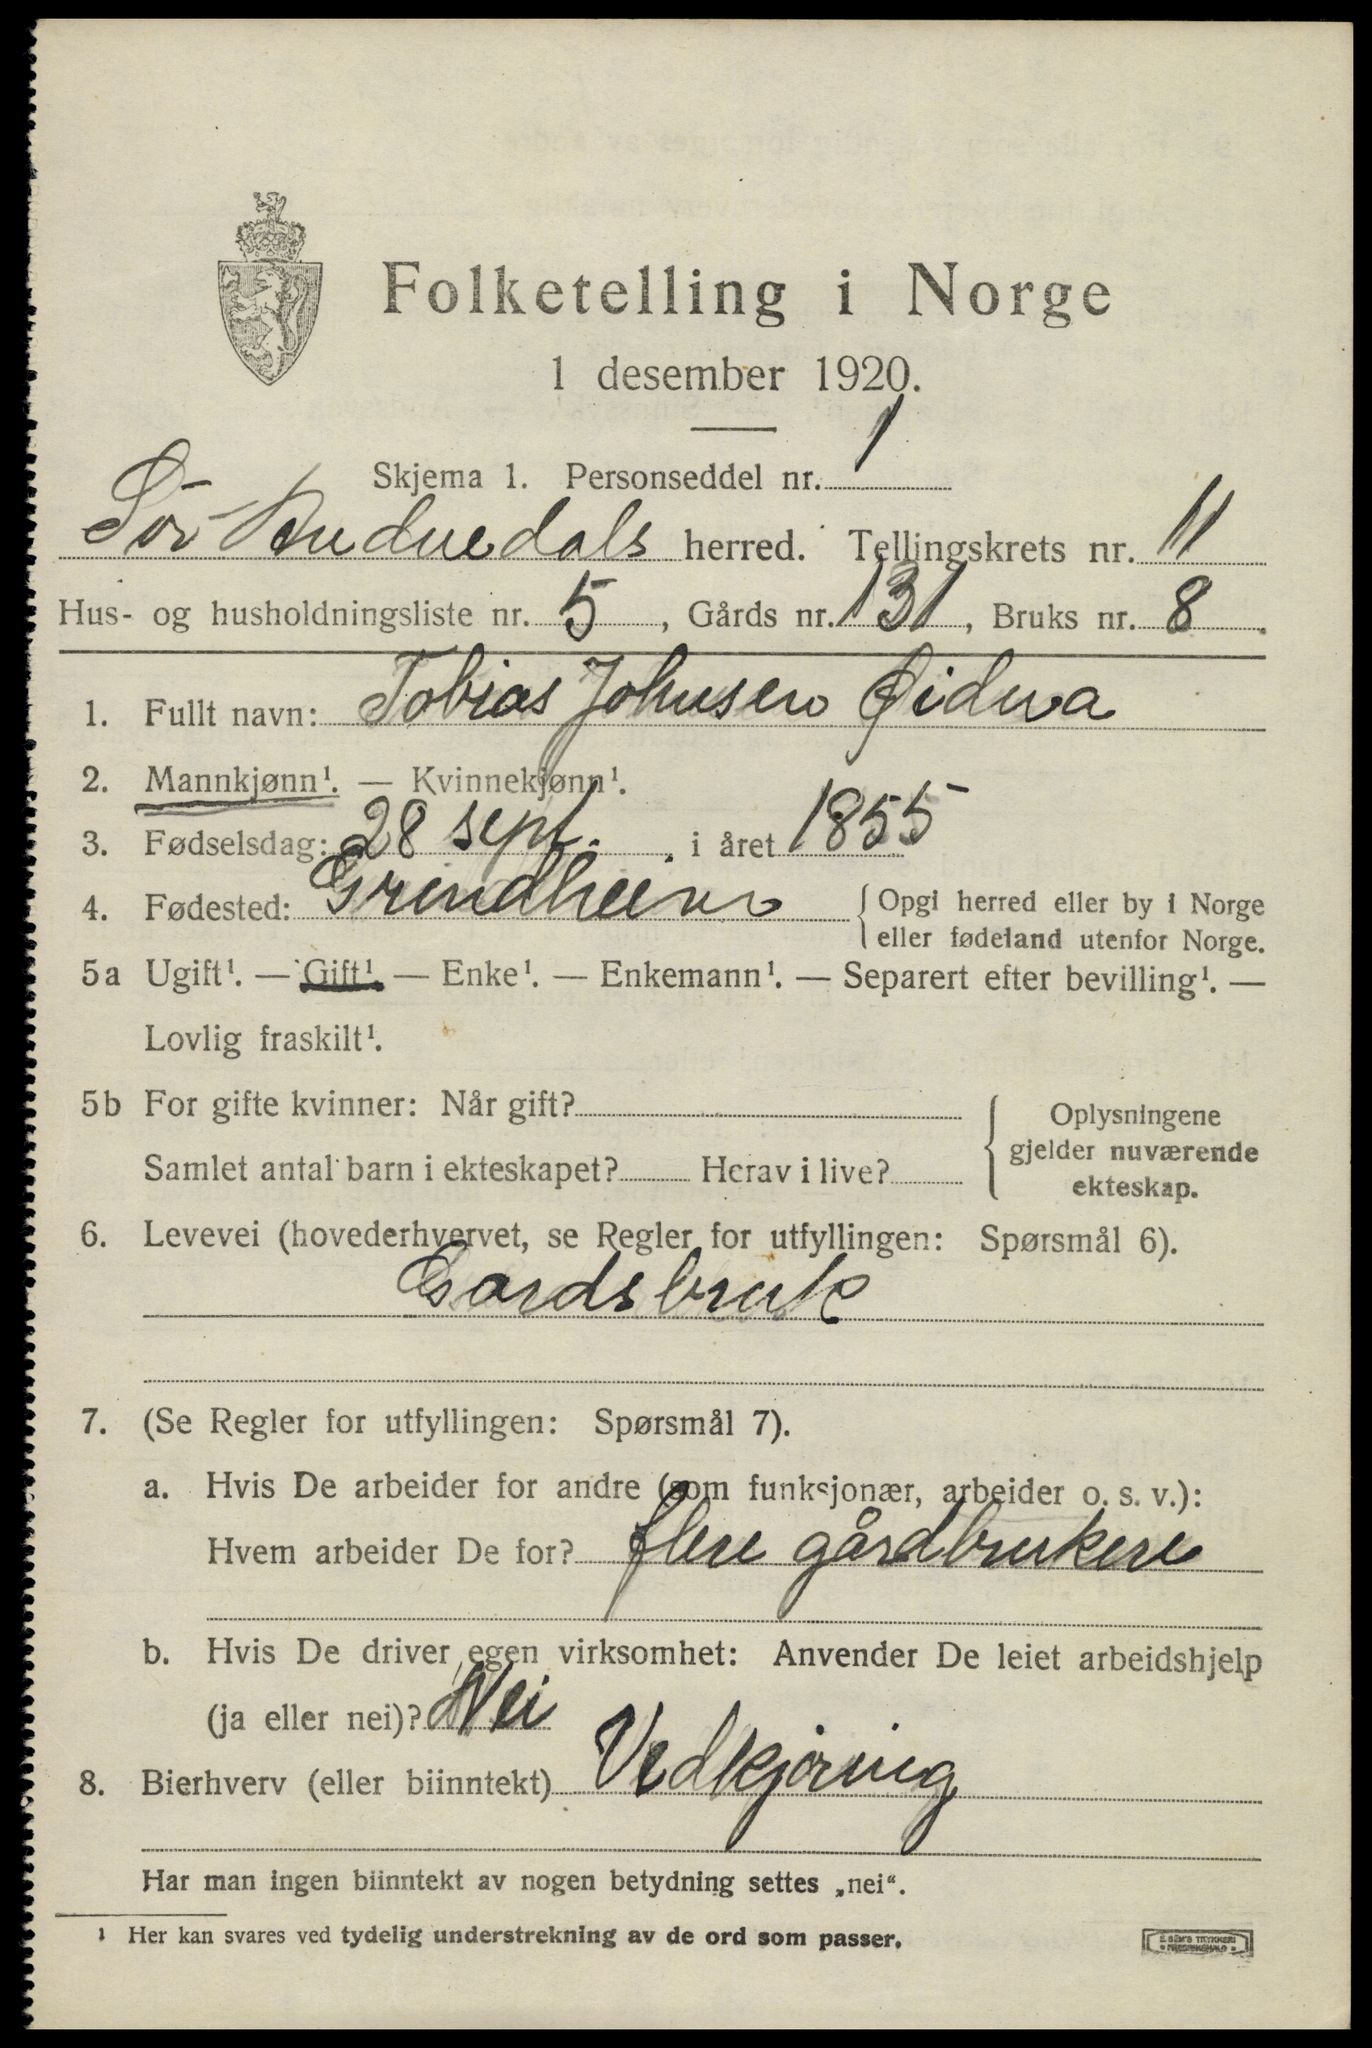 Folketelling i Norge
1 desember 1920.
Skjema 1. Personseddel nr. 1
Sør Audnedals herred. Tellingskrets nr. 11
Hus- og husholdningsliste nr. 5, Gårds nr. 131, Bruks nr. 8.
1. Fullt navn: Tobias Johnsen Øidna
2. Mannkjønn¹. — Kvinnekjønn¹.
3. Fødselsdag: 28 sept. i året 1855
4. Fødested: Grindheim { Opgi herred eller by i Norge
eller fødeland utenfor Norge.
5a Ugift¹. — Gift¹. — Enke¹. — Enkemann¹. — Separert efter bevilling¹. —
Lovlig fraskilt¹.
5b For gifte kvinner: Når gift?
Samlet antal barn i ekteskapet? Herav i live?
Oplysningene
gjelder nuværende
ekteskap.
6. Levevei (hovederhvervet, se Regler for utfyllingen: Spørsmål 6).
Gardsbruk
7. (Se Regler for utfyllingen: Spørsmål 7).
a. Hvis De arbeider for andre (som funksjonær, arbeider o. s. v.):
Hvem arbeider De for? flere gårdbrukere
b. Hvis De driver egen virksomhet: Anvender De leiet arbeidshjelp
(ja eller nei)? Nei
8. Bierhverv (eller biinntekt) Vedkjøring
Har man ingen biinntekt av nogen betydning settes „nei“.
¹ Her kan svares ved tydelig understrekning av de ord som passer.